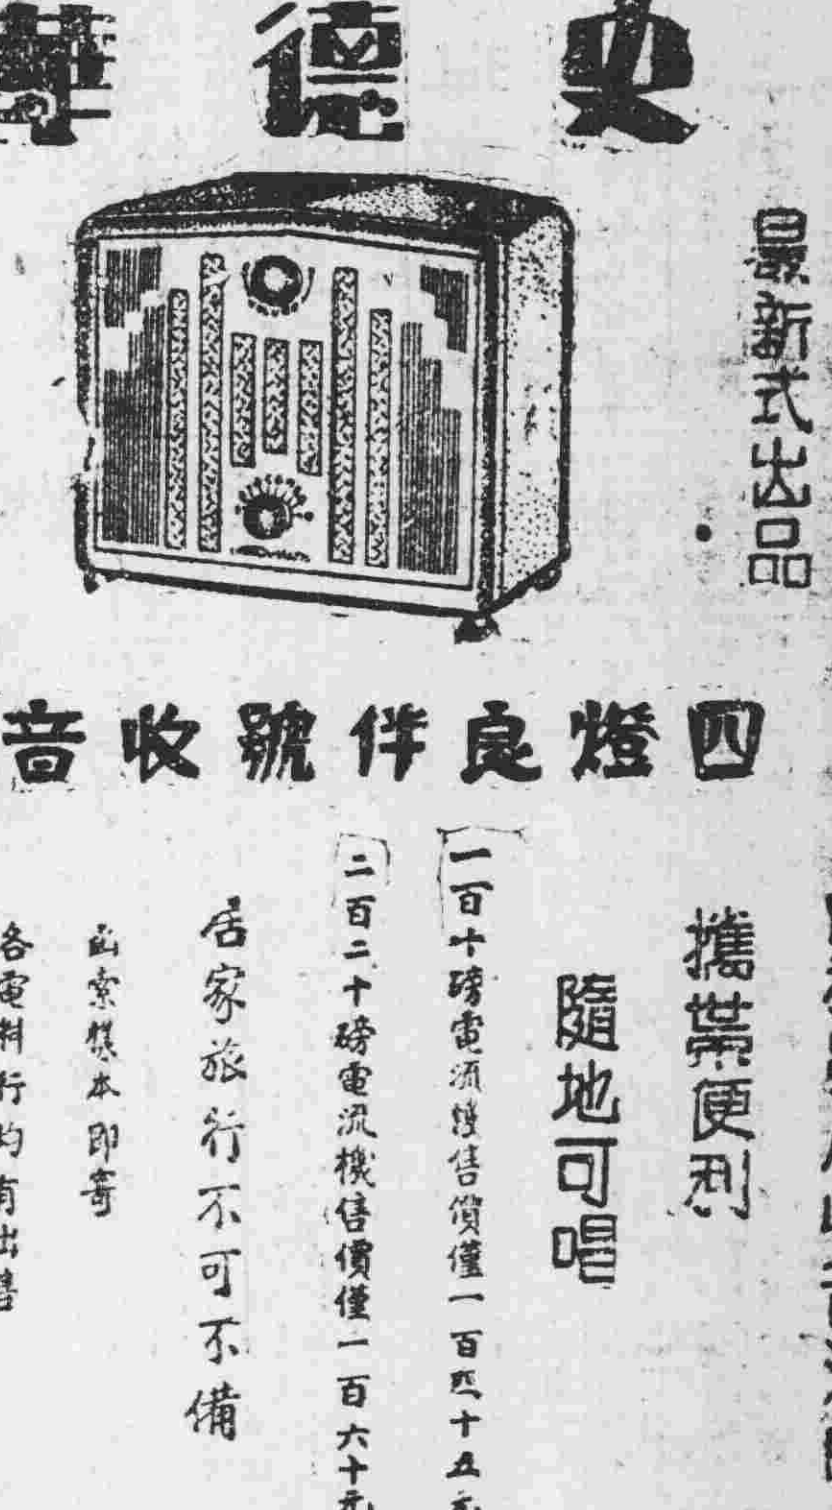 史德華
最新式出品
四燈良伴號收音
攜帶便利
隨地可唱
一百十磅電流機售價僅一百四十五元
二百二十磅電流機售價僅一百六十元
居家旅行不可不備
函索樣本即寄
各電料行均有出售